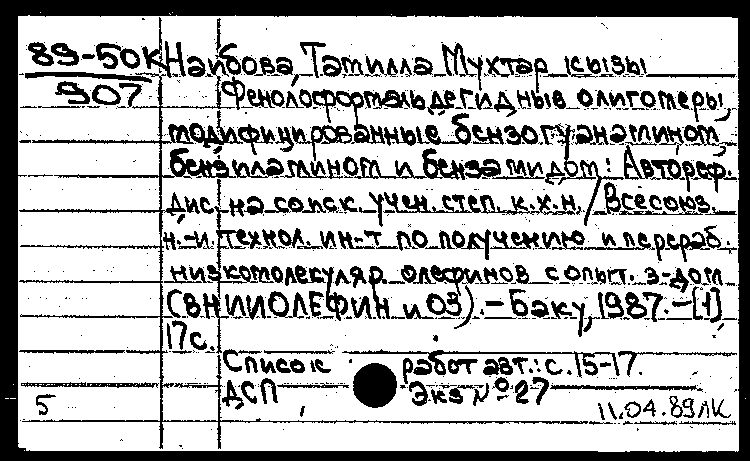 89-50К Наибова, Тамилла Мухтар кызы
907 Фенолоформальдегидные олигомеры,
модифицированные бензогуанамином,
бензиламином и бензамидом: Автореф.
дис. на соиск. учен. степ. к.х.н. / Всесоюз.
н.-и. технол. ин-т по получению и перераб.
низкомолекуляр. олефинов с опыт. з-дом
(ВНИИОЛЕФИН и ОЗ). - Баку, 1987. - [1],
17с.
Список работ авт.: с. 15-17.
ДСП Экз № 27
5 11.04.89ЛК